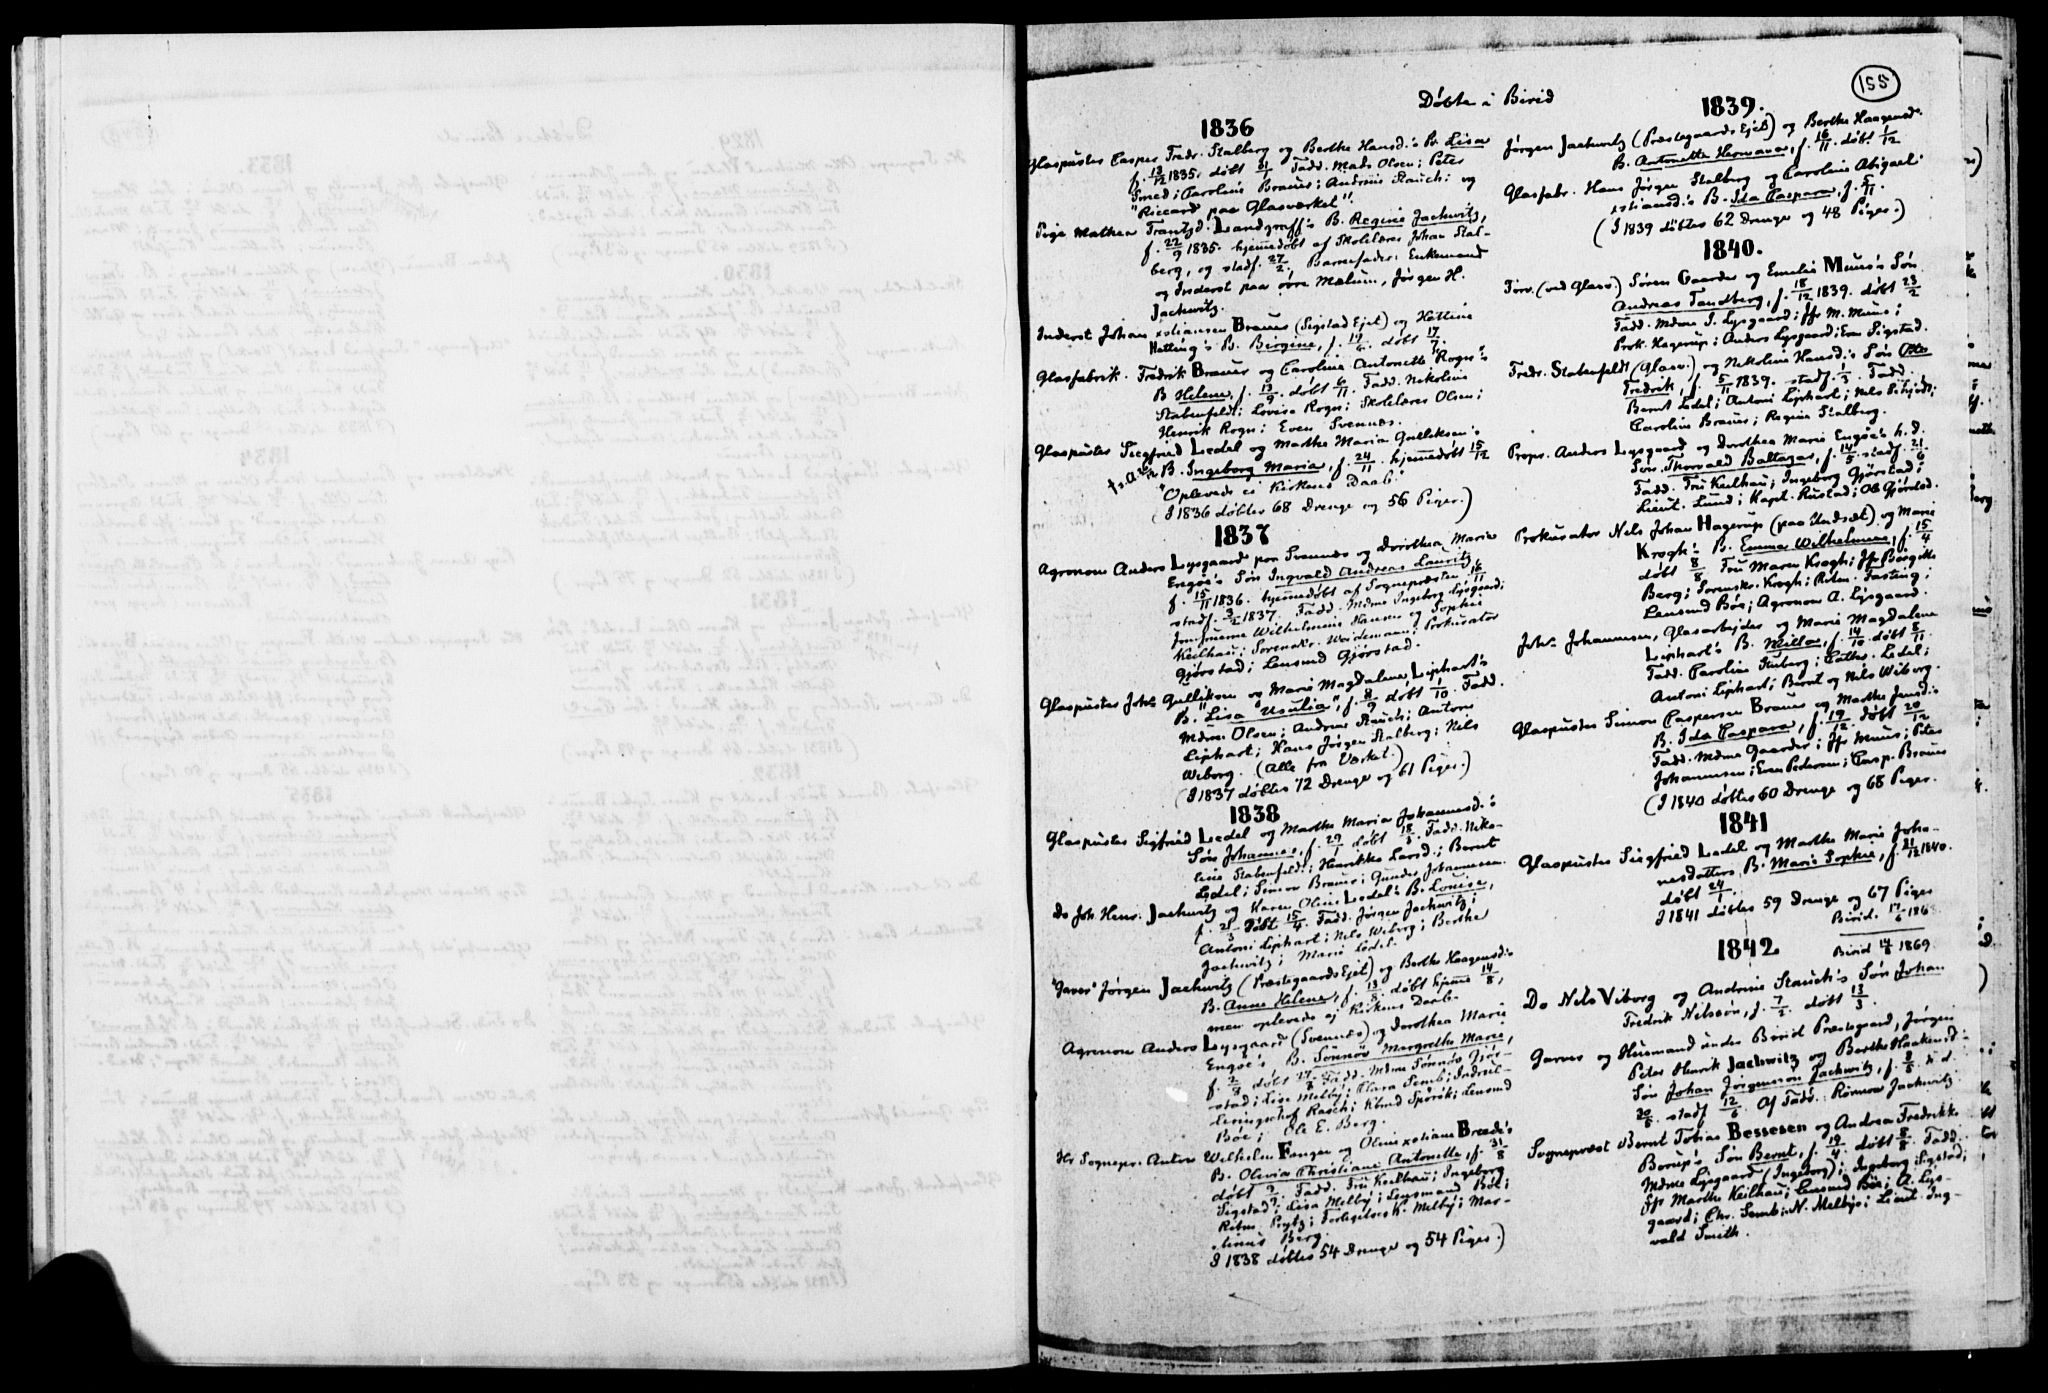 155
Døbte i Birid
1836
Glaspuster Casper Fredr. Stalberg og Berthe Hansd.'s B. Lisa
f. 13/12 1835. døbt 31/1 Fadd. Mads Olsen; Peter
Smed; Caroline Brauer; Andrine Stauch; og
"Riccard paa Glasværket".
Pige Mathea Frantzd. Landgraff's B. Regine Jachwitz,
f. 22/9 1835. hjemmedøbt af Skolelærer Johan Stal-
berg, og stadf. 27/2. Barnefader: Enkemand
og Inderst paa øvre Mælum, Jørgen H.
Jachwitz.
Inderst Johan xstiansen Brauer (Sigstad Ejet) og Hettine
Hetting's B. Birgine, f. 19/6. døbt 17/7.
Glasfabrik. Fredrik Brauer og Caroline Antonette Rogn's
B Helene, f. 13/9. døbt 6/11. Fadd. Nikoline
Stabenfeldt; Lovise Rogn; Skolelærer Olsen;
Henrik Rogn; Even Svennes.
Glaspuster Siegfried Ledel og Marthe Maria Gulliksen's
B. Ingeborg Maria, f. 24/11. hjemmedøbt 15/12
"Oplevede ei Kirkens Daab."
(I 1836 døbtes 68 Drenge og 56 Piger.)
1837
Agronom Anders Lysgaard paa Svennes og Dorothea Marie
Engøe's Søn Ingvald Andreas Lauritz
f. 15/11 1836. hjemmedøbt af Sognepresten 16/11
stadf. 3/2 1837. Fadd. Mdme Ingeborg Lysgaard;
Jomfruerne Wilhelmine Hannes og Sophie
Keilhau; Sorenskr. Weidemann; Prokurator
Gjørstad; Lensmd Gjørstad.
Glaspuster Johs Gulliksen og Marie Magdalene Liphart's
B. Lisa "Usulia", f. 8/9 døbt 1/10. Fadd.
Mdme Olsen; Andrine Stauch; Antone
Liphart; Hans Jørgen Stalberg; Nils
Wiborg. (Alle fra Værket.)
(I 1837 døbtes 72 Drenge og 61 Piger.)
1838
Glaspuster Sigfried Ledel og Marthe Maria Johannesd.'s
Søn Johannes, f. 29/1 døbt 18/3. Fadd. Niko-
line Stabenfeldt; Henrikke Larsd.; Bernt
Ledel; Simon Brauer; Gunder Johannesen.
Do Joh. Henr. Jachwitz og Karen Oline Ledel's B. Louise,
f. 21/3 Døbt 15/4. Fadd. Jørgen Jachwitz;
Antoni Liphart; Nils Wiborg; Berthe
Jachwitz; Marie Ledel.
"Garver" Jørgen Jachwitz (Præstegaards Ejet) og Berthe Haagensd.'s
B. Anne Helene, f. 13/8. døbt hjemme 14/8,
men oplevede ej Kirkens Daab.
Agronom Anders Lysgaard (Svennes) og Dorothea Marie
Engøe's B. Sønnøv Margrethe Marie,
f. 2/7 døbt 27/8 Fadd. Mdme Sønnøv Gjør-
stad; Lise Melby; Clara Semb; Indrul-
leringschef Rasch; Kbmd Spørck; Lensmd
Boe; Ole E. Berg.
Hr Sognepr. Anton Wilhelm Fangen og Oline xstiane Breda's
B. Olivia Christiane Antonette, f. 31/8
døbt 9/9. Fadd. Fru Keilhau; Ingeborg
Sigstad; Lisa Melby; Lensmand Böe;
Ritm. Prytz; Forligelsesk. Melby; Mar-
tinus Berg.
I 1838 døbtes 54 Drenge og 54 Piger.)
1839.
Jørgen Jachwitz (Præstegaards Ejet) og Berthe Haagensd.
B. Antonette Hermana, f. 16/11. døbt 1/12
Glasfabr. Hans Jørgen Stalberg og Caroline Abigael
xstiansd.'s B. Ida Caspara, f. 5/11.
(I 1839 døbtes 62 Drenge og 48 Piger.)
1840.
Forv. (ved Glasv.) Søren Gaarder og Emelie Muus's Søn
Andreas Tandberg, f. 18/12 1839. døbt 23/2
Fadd. Mdme I. Lysgaard; Jfr M. Muus;
Prok. Hagerup; Anders Lysgaard; Even Sigstad.
Fredr. Stabenfeldt (Glasv.) og Nikoline Hansd.'s Søn Otto
Fredrik, f. 5/11 1839. stadf. 1/3. Fadd.
Bernt Ledel; Antoni Liphart;
Caroline Brauer; Regine Stalberg.
Propr. Anders Lysgaard og Dorothea Marie Engøe's h.d.
Søn Thorvald Baltazar, f. 14/5 stadf. 21/6
Fadd. Fru Keilhau; Ingeborg Gjørstad;
Lieut. Lund; Kapt. Rustad; Ole Gjørstad.
Prokurator Nels Johan Hagerup (paa Stadset) og Marie
Krogh's B. Emma Wilhelmine, f. 15/4
døbt 8/8 Fru Maren Krogh; Jfr Birgitte
Berg; Sorenskr. Krogh; Ritm. Fasting;
Lensmd Böe; Agronom A. Lysgaard.
Johs Johannesen, Glasarbejder og Marie Magdalene
Liphart's B. Millow, f. 14/10 døbt 8/11
Fadd. Caroline Stuberg; Cathr. Ledel;
Antoni Liphart; Bernt og Nils Wiborg.
Glaspuster Simon Caspersen Brauer og Marthe Jensd.'s
B. Ida Caspara, f. 19/12. døbt 20/12
Fadd. Mdme Gaarder; Jfr Muus; Peter
Johannesen; Even Pedersen; Casp. Brauer
(I 1840 døbtes 60 Drenge og 68 Piger.
1841
Glaspuster Siegfried Ledel og Marthe Marie Joha-
nesdatters B. Marie Sophie, f. 21/12 1840.
døbt 24/1.
I 1841 døbtes 59 Drenge og 67 Piger
Birid. 17/6 186
1842
Birid 14/8 1869
Do Nils Viborg og Andrine Stauch's Søn Johan
Fredrik Nilssøn, f. 7/2. døbt 13/3.
Garver og Husmand under Birid Præstegaard, Jørgen
Peter Henrik Jachwitz og Berthe Haakensd.
Søn Johan Jörgenssøn Jachwitz, f. 8/5 h.d.
20/5. stadf 12/6. Af Fadd: Römer Jachwitz.
Sognepræst Bernt Tobias Bessesen og Andrea Fredrikke
Borup's Søn Bernt, f. 19/4. døbt 8/8. Fadd.
Mdme Lysgaard (Ingeborg); Ingeborg Sigstad;
Jfr Marthe Keilhau; Lensmd Böe; A. Lys-
gaard; Chr. Semb; N. Melbye; Lieut. Ing-
vald Smith.